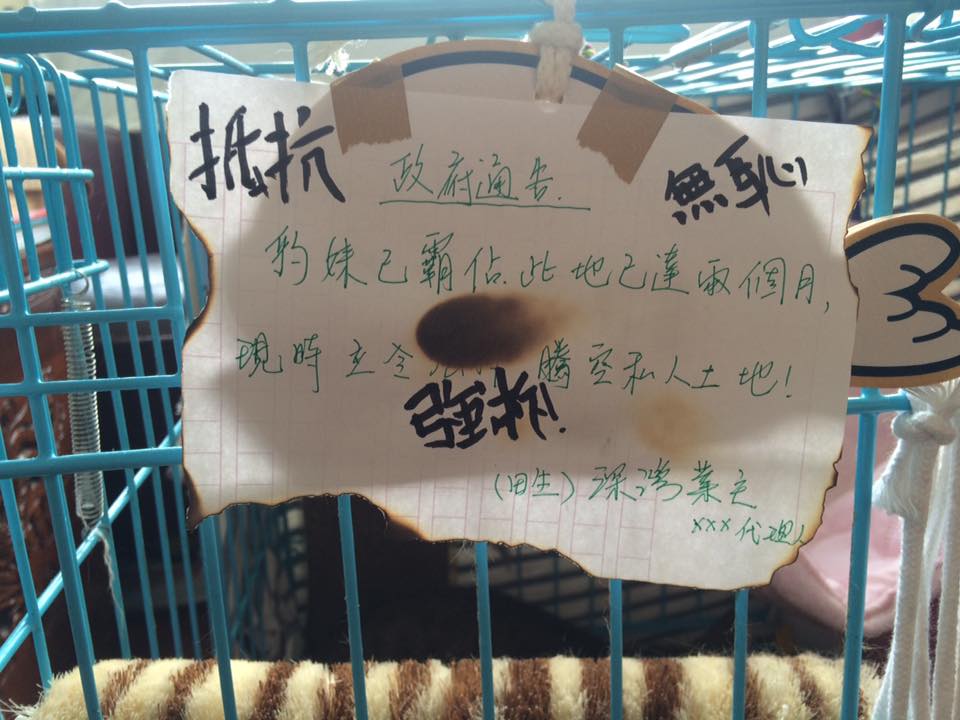 抵抗
無恥
政府通告.
豹妹已霸佔此地已達兩個月,
現時立令 騰空私人土地!
強拆!
(田生) 深灣業主
xxx代理人